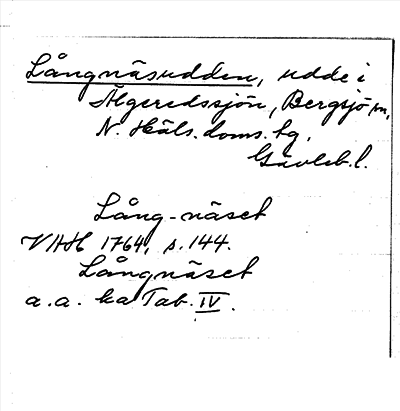 Långnäsudden, udde i
Älgeredssjön, Bergsjö sn,
N. Häls. doms. hg.
Gävleb. l.
Lång-näset
VAH 1764, s. 144.
Långnäset
a.a. ka Tab. IV.